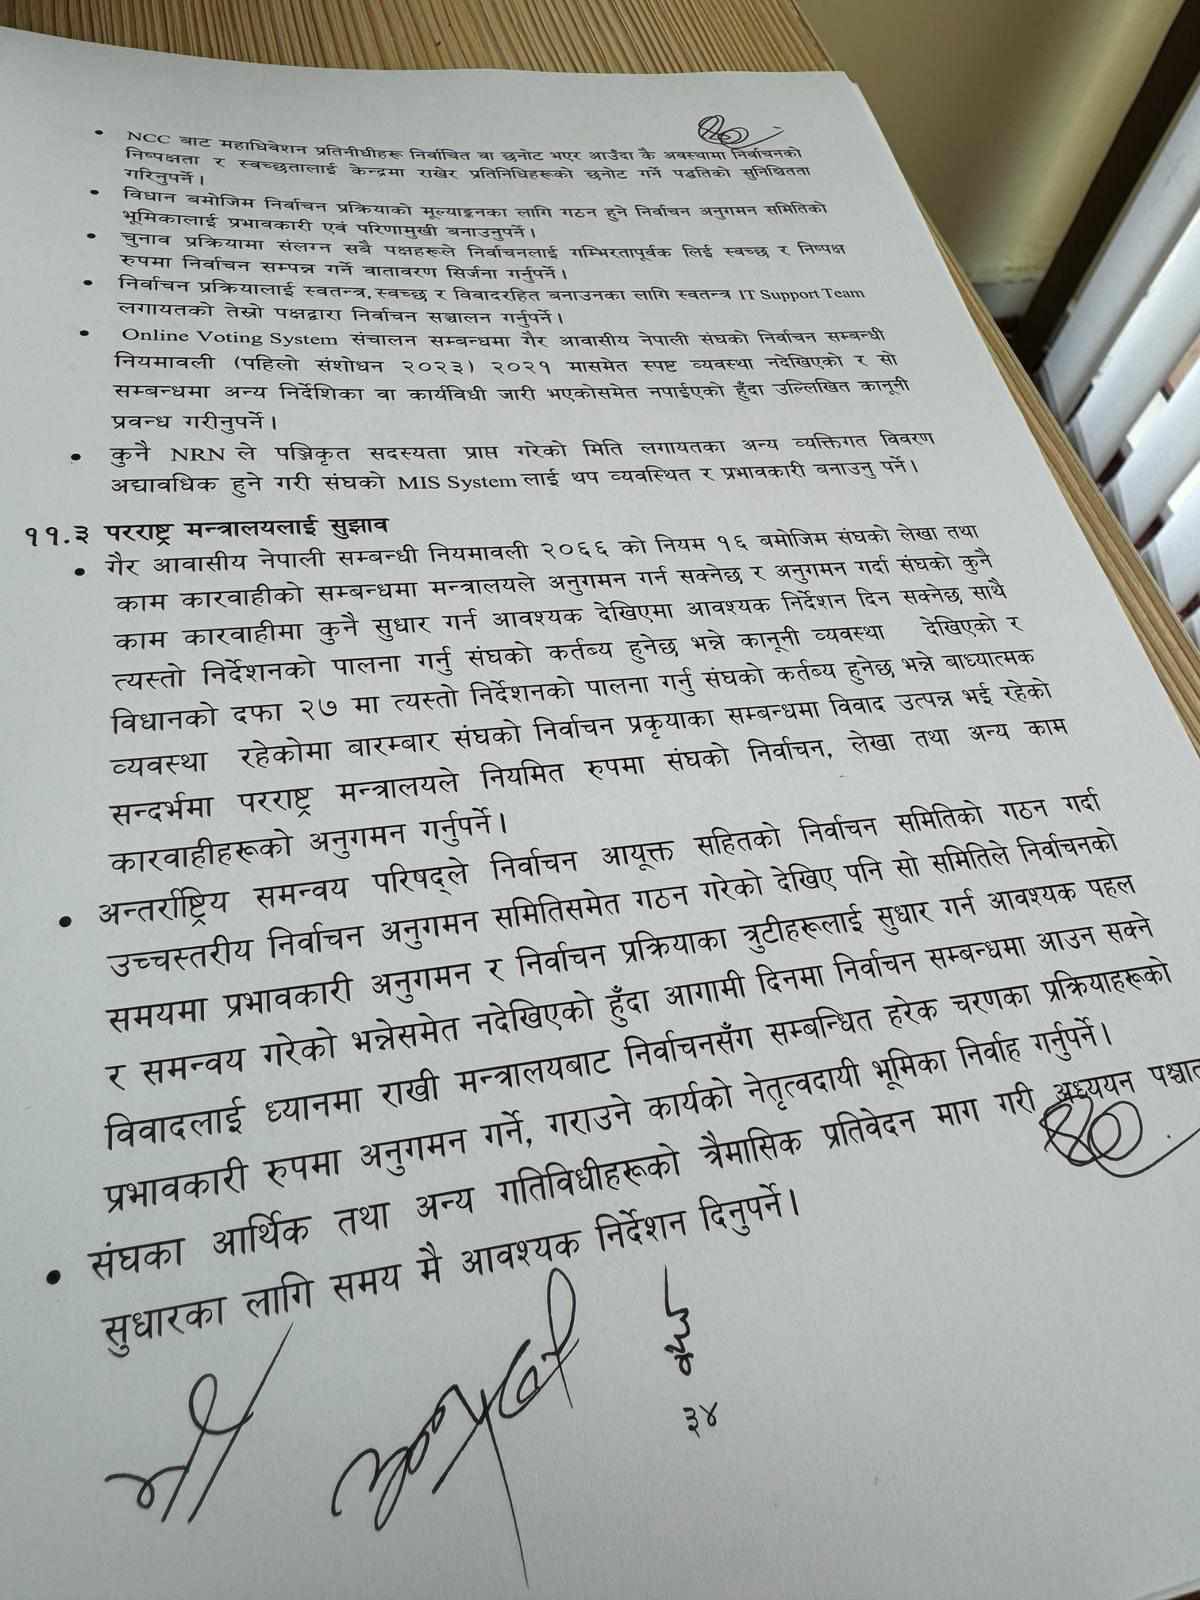 • NCC बाट महाधिबेशन प्रतिनीधीहरू निर्वाचित वा छनोट भएर आउँदा कै अवस्थामा निर्वाचनको
निष्पक्षता र स्वच्छतालाई केन्द्रमा राखेर प्रतिनिधिहरूको छनोट गर्ने पद्धतिको सुनिश्चितता
गरिनुपर्ने।
• विधान बमोजिम निर्वाचन प्रक्रियाको मूल्याङ्कनका लागि गठन हुने निर्वाचन अनुगमन समितिको
भूमिकालाई प्रभावकारी एवं परिणामुखी बनाउनुपर्ने।
• चुनाव प्रक्रियामा संलग्न सबै पक्षहरूले निर्वाचनलाई गम्भिरतापूर्वक लिई स्वच्छ र निष्पक्ष
रुपमा निर्वाचन सम्पन्न गर्ने वातावरण सिर्जना गर्नुपर्ने।
• निर्वाचन प्रक्रियालाई स्वतन्त्र, स्वच्छ र विवादरहित बनाउनका लागि स्वतन्त्र IT Support Team
लगायतको तेस्रो पक्षद्वारा निर्वाचन सञ्चालन गर्नुपर्ने।
• Online Voting System संचालन सम्बन्धमा गैर आवासीय नेपाली संघको निर्वाचन सम्बन्धी
नियमावली (पहिलो संशोधन २०२३) २०२१ मासमेत स्पष्ट व्यवस्था नदेखिएको र सो
सम्बन्धमा अन्य निर्देशिका वा कार्यविधी जारी भएकोसमेत नपाईएको हुँदा उल्लिखित कानूनी
प्रवन्ध गरीनुपर्ने।
• कुनै NRN ले पञ्जिकृत सदस्यता प्राप्त गरेको मिति लगायतका अन्य व्यक्तिगत विवरण
अद्यावधिक हुने गरी संघको MIS System लाई थप व्यवस्थित र प्रभावकारी बनाउनु पर्ने।
११.३ परराष्ट्र मन्त्रालयलाई सुझाव
• गैर आवासीय नेपाली सम्बन्धी नियमावली २०६६ को नियम १६ बमोजिम संघको लेखा तथा
काम कारवाहीको सम्बन्धमा मन्त्रालयले अनुगमन गर्न सक्नेछ र अनुगमन गर्दा संघको कुनै
काम कारवाहीमा कुनै सुधार गर्न आवश्यक देखिएमा आवश्यक निर्देशन दिन सक्नेछ, साथै
त्यस्तो निर्देशनको पालना गर्नु संघको कर्तब्य हुनेछ भन्ने कानूनी व्यवस्था देखिएको र
विधानको दफा २७ मा त्यस्तो निर्देशनको पालना गर्नु संघको कर्तब्य हुनेछ, भन्ने बाध्यात्मक
व्यवस्था रहेकोमा बारम्बार संघको निर्वाचन प्रकृयाका सम्बन्धमा विवाद उत्पन्न भई रहेको
सन्दर्भमा परराष्ट्र मन्त्रालयले नियमित रुपमा संघको निर्वाचन, लेखा तथा अन्य काम
कारवाहीहरूको अनुगमन गर्नुपर्ने।
• अन्तर्राष्ट्रिय समन्वय परिषद्ले निर्वाचन आयूक्त सहितको निर्वाचन समितिको गठन गर्दा
उच्चस्तरीय निर्वाचन अनुगमन समितिसमेत गठन गरेको देखिए पनि सो समितिले निर्वाचनको
समयमा प्रभावकारी अनुगमन र निर्वाचन प्रक्रियाका त्रुटीहरूलाई सुधार गर्न आवश्यक पहल
र समन्वय गरेको भन्नेसमेत नदेखिएको हुँदा आगामी दिनमा निर्वाचन सम्बन्धमा आउन सक्ने
विवादलाई ध्यानमा राखी मन्त्रालयबाट निर्वाचनसँग सम्बन्धित हरेक चरणका प्रक्रियाहरूको
प्रभावकारी रुपमा अनुगमन गर्ने, गराउने कार्यको नेतृत्वदायी भूमिका निर्वाह गर्नुपर्ने।
• संघका आर्थिक तथा अन्य गतिविधीहरूको त्रैमासिक प्रतिवेदन माग गरी अध्ययन पश्चात
सुधारका लागि समय मै आवश्यक निर्देशन दिनुपर्ने।
३४